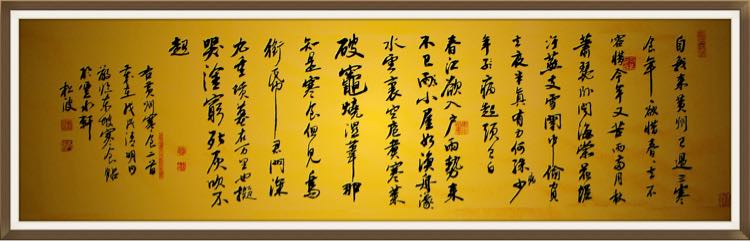 自我来黄州已過三寒
食年々欲惜春々去不
容惜今年又苦雨兩月秋
蕭瑟卧聞海棠花泥
汙燕支雪闇中偷負
去夜半真有力何殊少
年子病起頭已白
春江欲入户雨勢来
不已雨小屋如漁舟濛
水雲裏空庖煮寒菜
破竈燒湿葦那
知是寒食但見烏
銜帋君門深
九重墳墓在万里也擬
哭塗窮死灰吹不
起
右黄州寒食二首
戊戌清明日
臨东坡寒食帖
於水軒